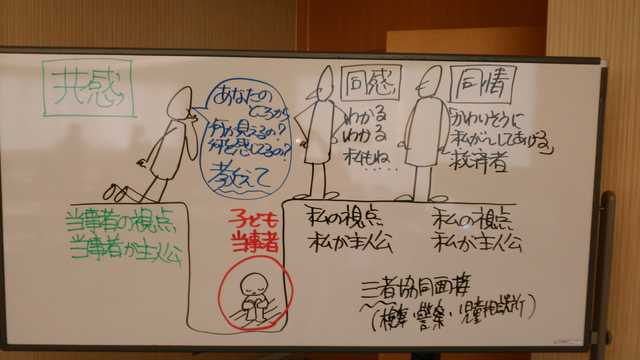 共感
あなたの
ところから
何が見えるの?
何を感じてるの?
教えて
同感
わかる
わかる
私もね……
同情
かわいそうに
私が〜してあげる」
救済者
当事者の視点
当事者が主人公
子ども
当事者
私の視点
私が主人公
私の視点
私が主人公
三者協同面接
(検事・警察・児童相談所)